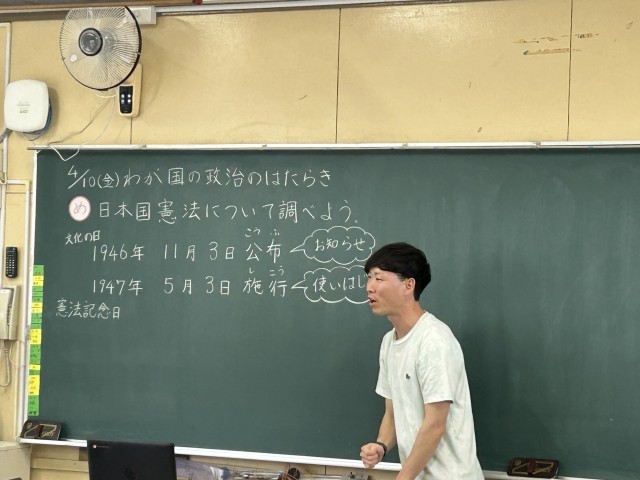 4/10(金)わが国の政治のはたらき
め 日本国憲法について調べよう。
こう ふ
文化の日
1946年 11月3日 公布 お知らせ
し こう
1947年 5月3日 施行 使いはじ
憲法記念日